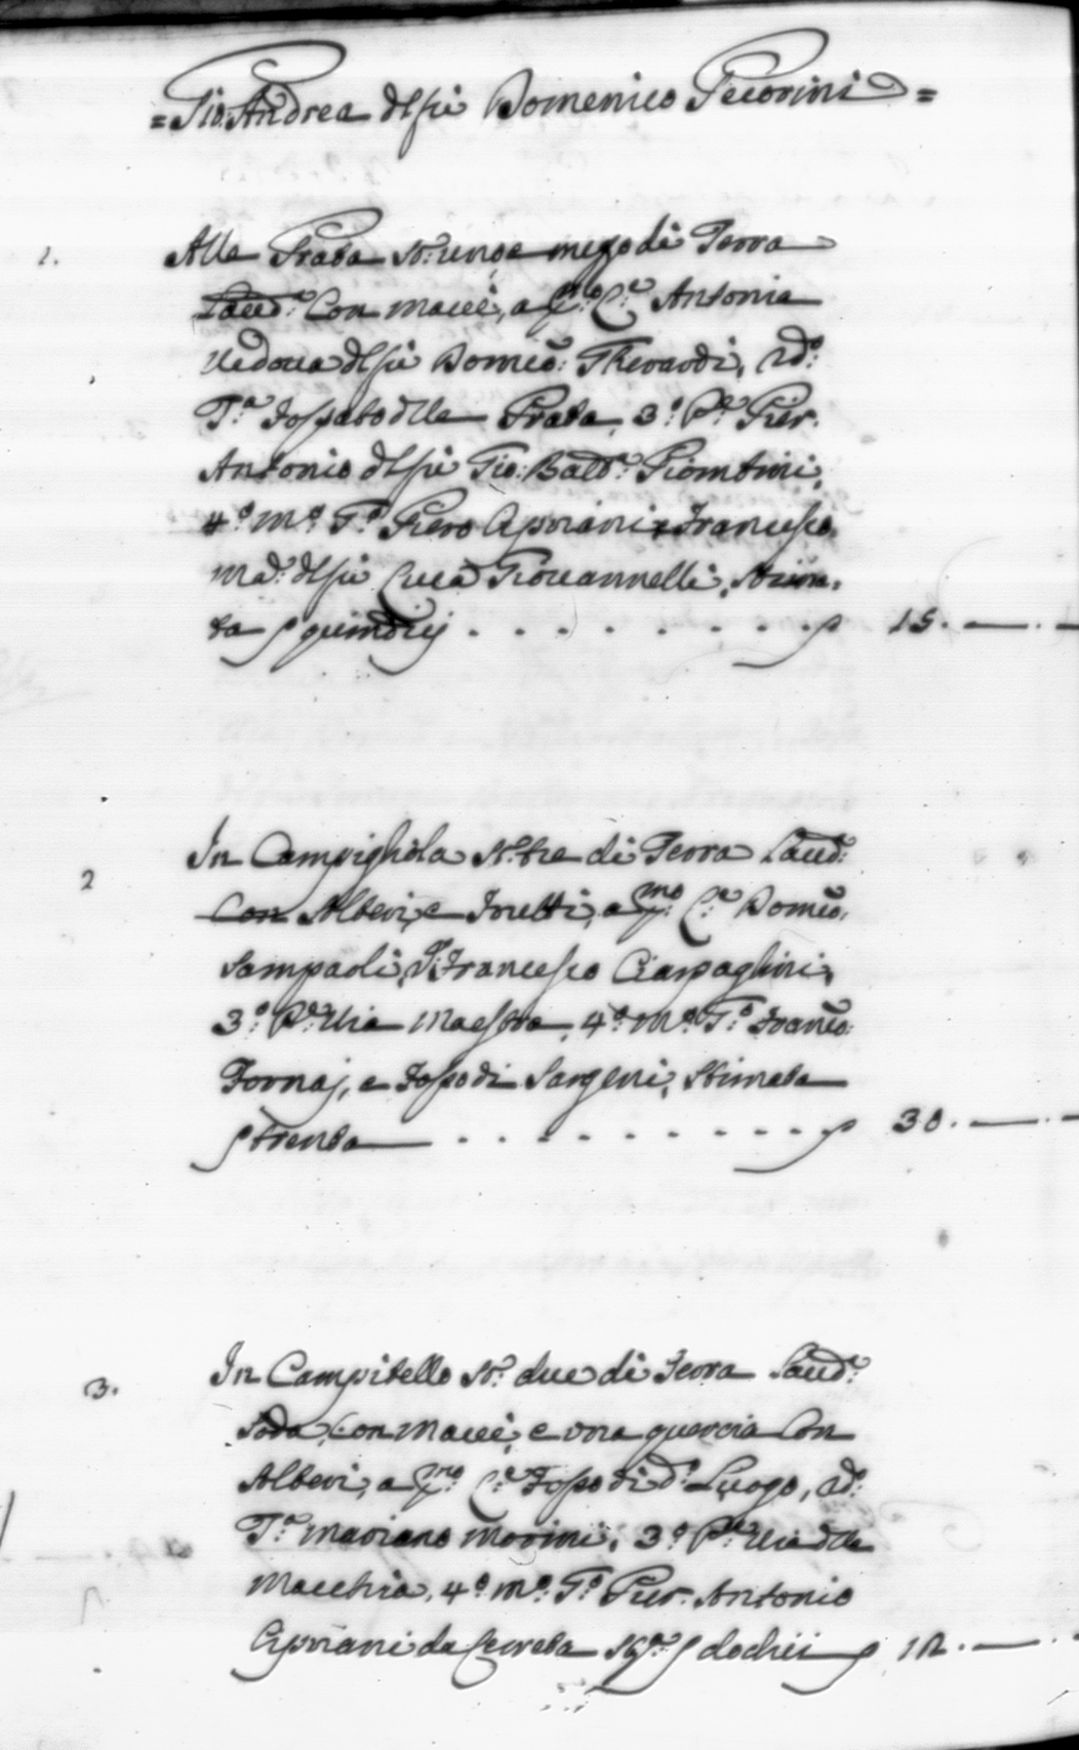 = Gio: Andrea dl fù Domenico Pecorini =
1. Alla Prata st: una e mezo di Terra
Laud: Con macee, a pº Cª Antonia
Vedoua dl fù Domcõ: Gherardi, 2dº
Tª Fossato dlla Prata, 3º Pª Pier
Antonio dl fù Gio: Batt: Piombini,
4º mº Tº Piero Cipriani e Francesco
Mª: dl fù Luca Giouannelli, stima-
ta p quindicj . . . . . . . . . p 15. — . —
2 In Campighola st: tre di Terra Laud:
Con Alberi, e frutti, a pmo Cª Domcõ:
Sampaoli, Francesco Ciaspaglini,
3º Pª Via Maestra, 4º mº Tº Francõ:
Fornaj, e Fosso di Sargeni, stimata
p trenta . . . . . . . . . . p 30. — . —
3. In Campitello st: due di Terra Laud:
Soda, Con Macee, e una quercia Con
Alberi, a pmo Cª Fosso di dº Luogo, 2dº
Tª Mariano Morini, 3º Pª Via dla
Macchia, 4º mº Tº Pier Antonio
Cipriani da Cerreta p dodici p 12. — .